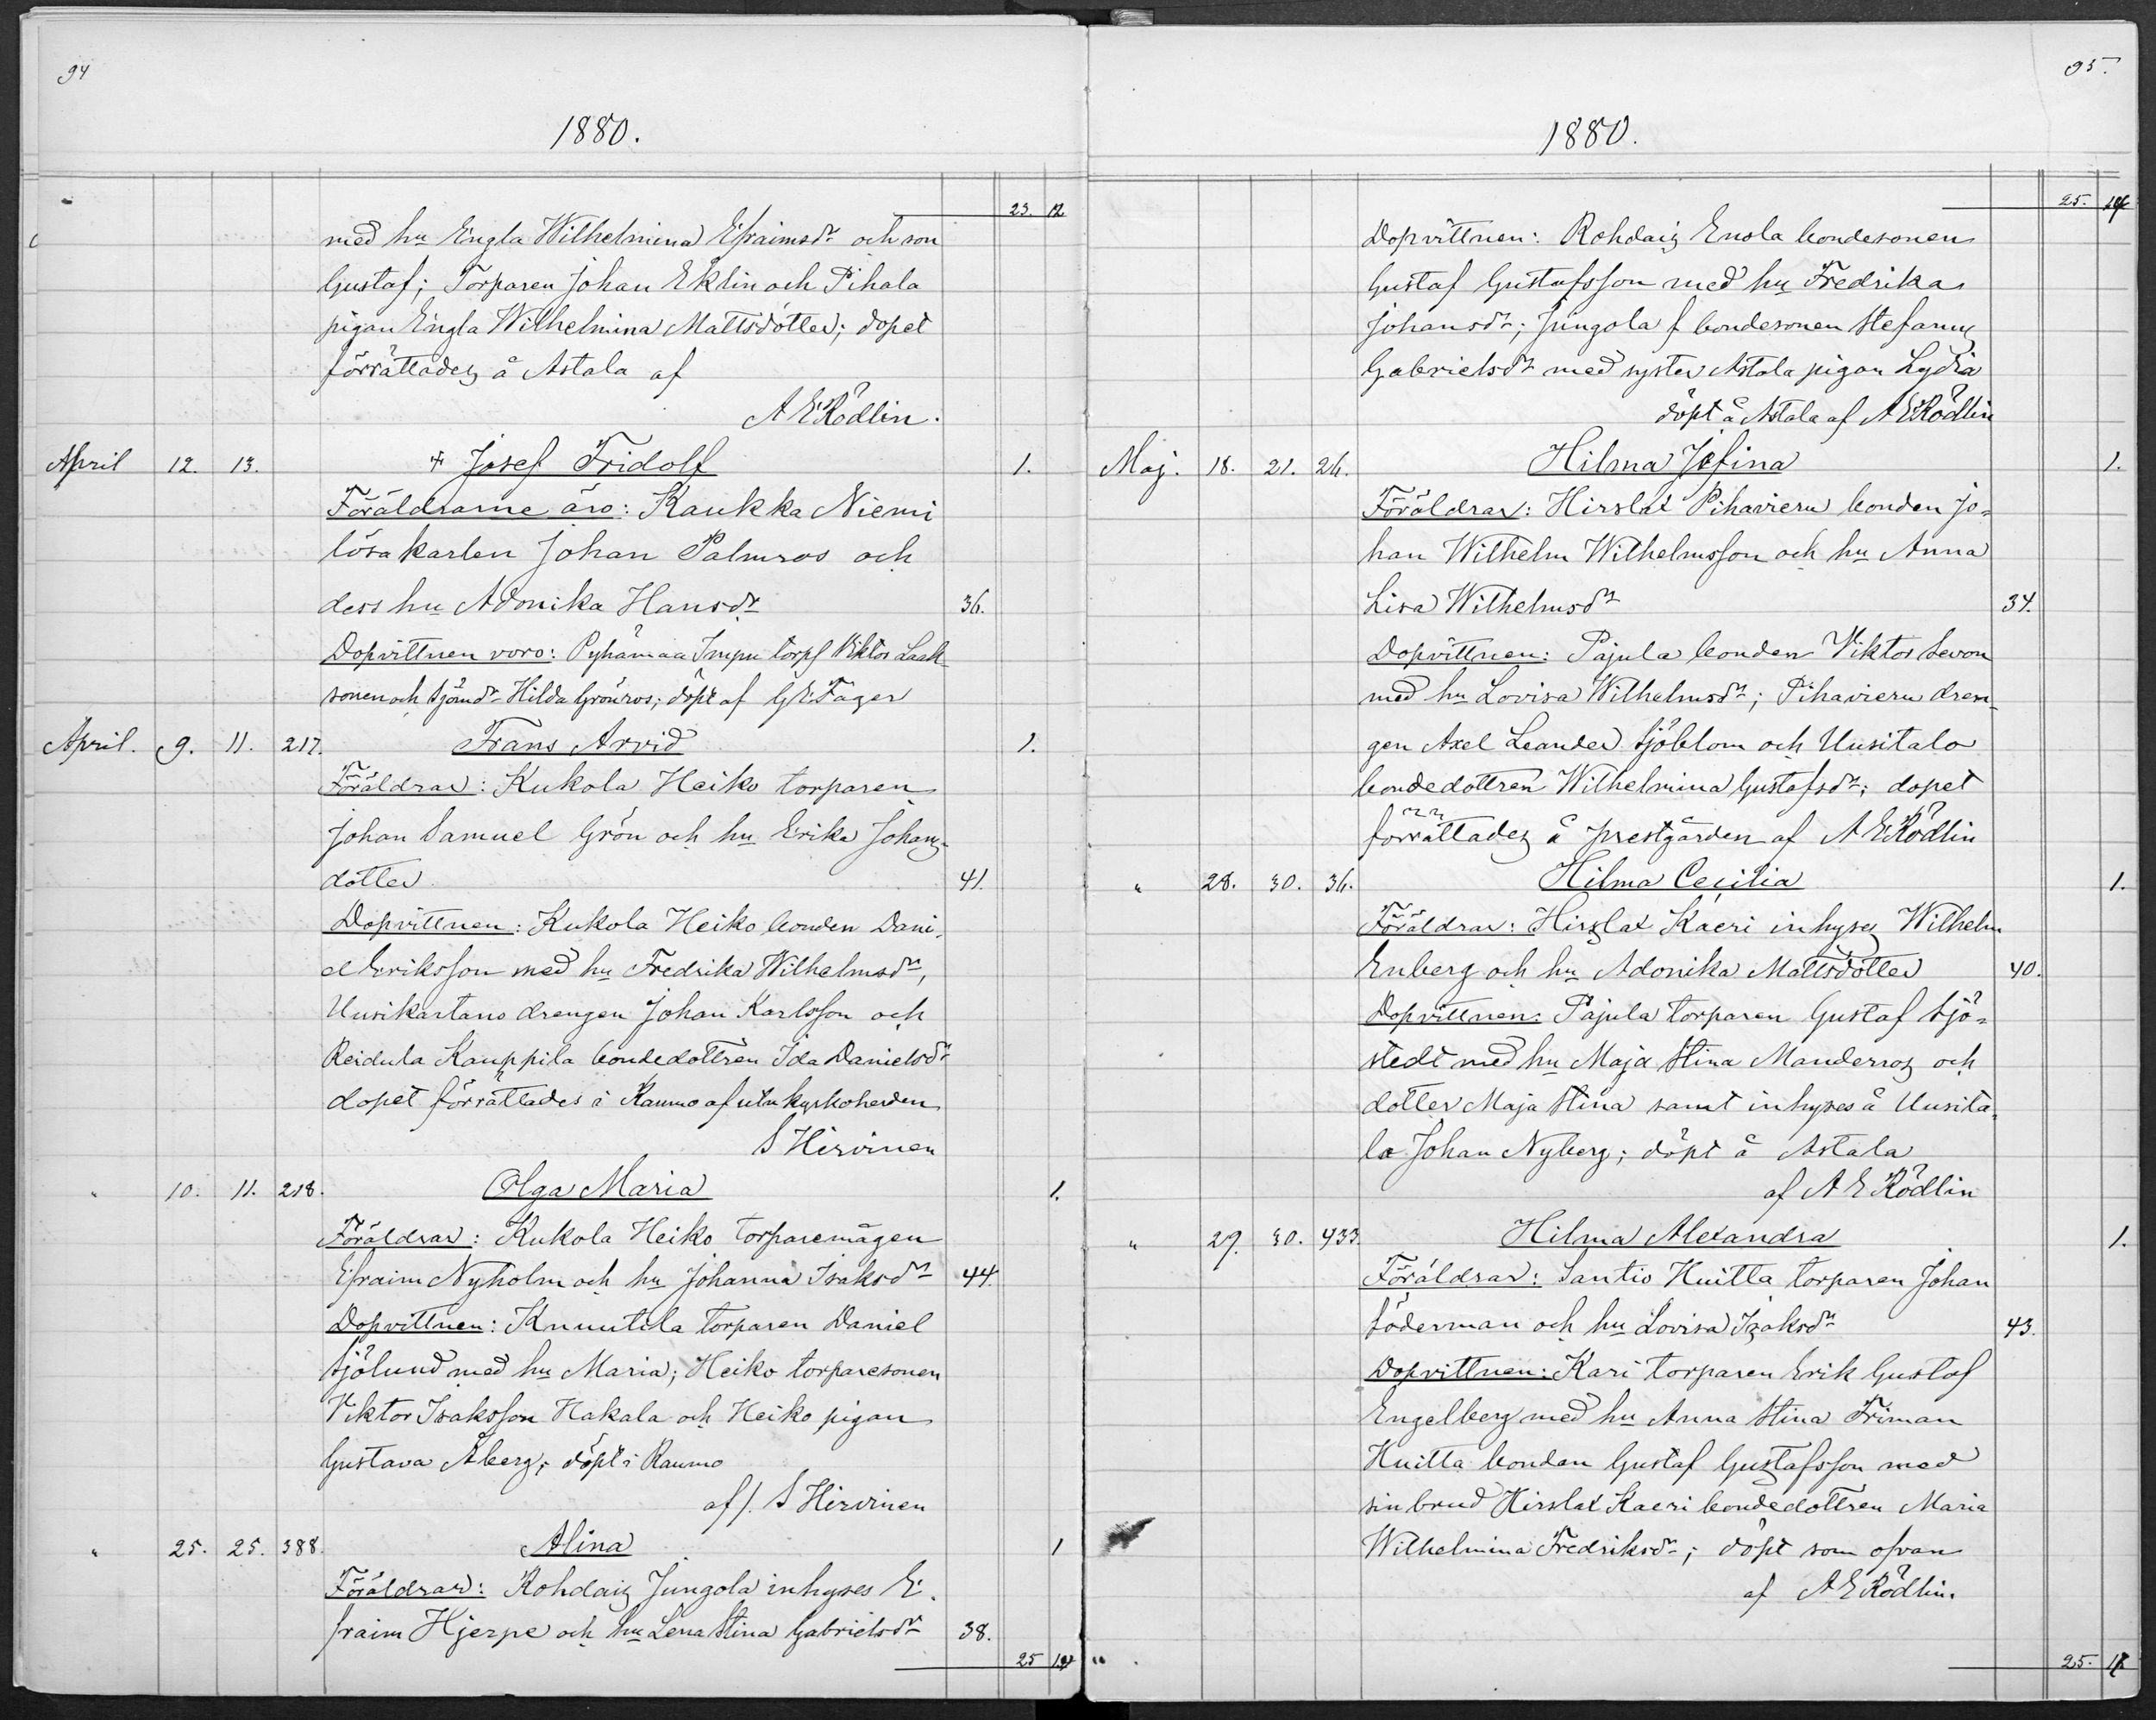 94
1880.
23. 12
med hu Engla Wilhelmina Efraimsdr och son
Gustaf; Torparen Johan Eklin och Pihala
pigan Engla Wilhelmina Mattsdotter; dopet
förrättades å Astala af
A E Rödlin.
April 12. 13. + Josef Fridolf 1.
Föräldrarne äro: Kaukka Niemi
lösa karlen Johan Palmros och
dess hu Adonika Hansdr 36.
Dopvittnen voro: Pyhämaa Impu torpf Viktor Laak-
sonen och sjömdr Hilda Grönros; döpt af G E Fager
April. 9. 11. 217. Frans Arvid 1.
Föräldrar: Kukola Heiko torparen
Johan Samuel Grön och hu Erika Johans-
dotter 41.
Dopvittnen: Kukola Heiko bonden Dani-
el Eriksson med hu Fredrika Wilhelmsdr,
Uusikartano drengen Johan Karlsson och
Reidula Kauppila bondedottren Ida Danielsdr
dopet förrättades i Raumo af kyrkoherden
S Hirvinen
" 10. 11. 218. Olga Maria 1.
Föräldrar: Kukola Heiko torparemågen
Efraim Nyholm och hu Johanna Isaksdr 44.
Dopvittnen: Knuutila torparen Daniel
Sjölund med hu Maria; Heiko torparesonen
Viktor Isaksson Hakala och Heiko pigan
Gustava Åberg; döpt i Raumo
af f. S Hirvinen
" 25. 25. 388. Alina 1
Föräldrar: Rohdais Jungola inhyses E-
fraim Hjerpe och hu Lena Stina Gabrielsdr 38.
25
95.
1880.
25. 14
Dopvittnen: Rohdais Ensla bondesonen
Gustaf Gustafsson med hu Fredrika
Johansdr; Jungola f bondesonen Stefanus
Gabrielsdr med syster Astala pigan Lydia
döpt å Astala af A E Rödlin
Maj. 18. 21. 26. Hilma Jefina 1.
Föräldrar: Hirslax Pihavieru bonden Jo-
han Wilhelm Wilhelmsson och hu Anna
Lisa Wilhelmsdr 34.
Dopvittnen: Pajula bonden Viktor Levon
med hu Lovisa Wilhelmsdr; Pihavieru dren-
gen Axel Leander Sjöblom och Uusitalo
bondedottren Wilhelmina Gustafsdr; dopet
förrättades å prestgården af A E Rödlin
" 28. 30. 36. Hilma Cecilia 1.
Föräldrar: Hirslax Kaeri inhyses Wilhelm
Enberg och hu Adonika Mattsdotter 40.
Dopvittnen: Pajula torparen Gustaf Sjö-
stedt med hu Maja Stina Manderros och
dotter Maja Stina samt inhyses å Uusita-
lo Johan Nyberg; döpt å Astala
af A E Rödlin
" 29. 30. 433. Hilma Alexandra 1.
Föräldrar: Santio Huitta torparen Johan
Söderman och hu Lovisa Isaksdr 43.
Dopvittnen: Kari torparen Erik Gustaf
Engelberg med hu Anna Stina Friman
Huitta bonden Gustaf Gustafsson med
sin brud Hirslax Kaeri bondedottren Maria
Wilhelmina Fredriksdr; döpt som ofvan
af A E Rödlin.
25.